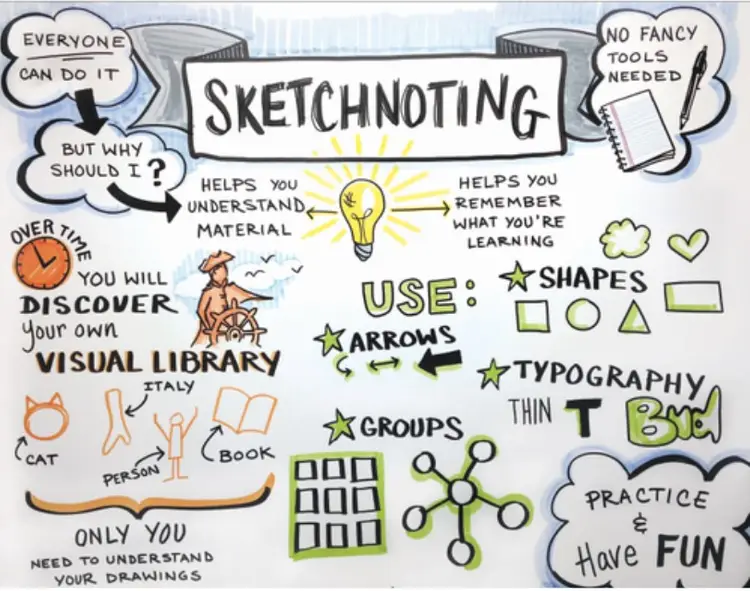 EVERYONE
CAN DO IT
SKETCHNOTING
NO FANCY
TOOLS
NEEDED
BUT WHY
SHOULD I ?
HELPS YOU
UNDERSTAND
MATERIAL
HELPS YOU
REMEMBER
WHAT YOU'RE
LEARNING
OVER TIME
YOU WILL
DISCOVER
your own
VISUAL LIBRARY
CAT
ITALY
PERSON
BOOK
ONLY YOU
NEED TO UNDERSTAND
YOUR DRAWINGS
USE:
ARROWS
SHAPES
TYPOGRAPHY
THIN T Bud
GROUPS
PRACTICE
&
Have FUN